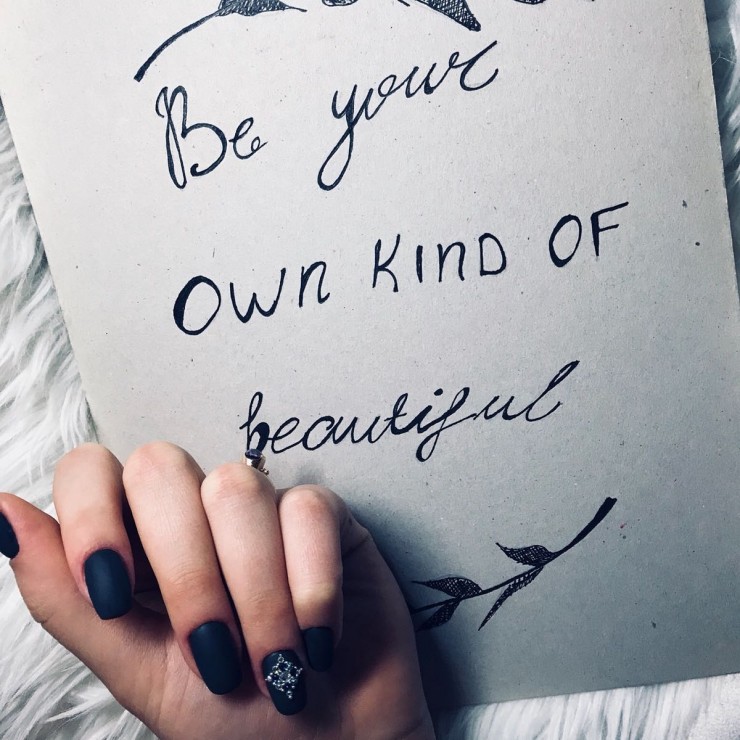 Be your
OWN KIND OF
beautiful